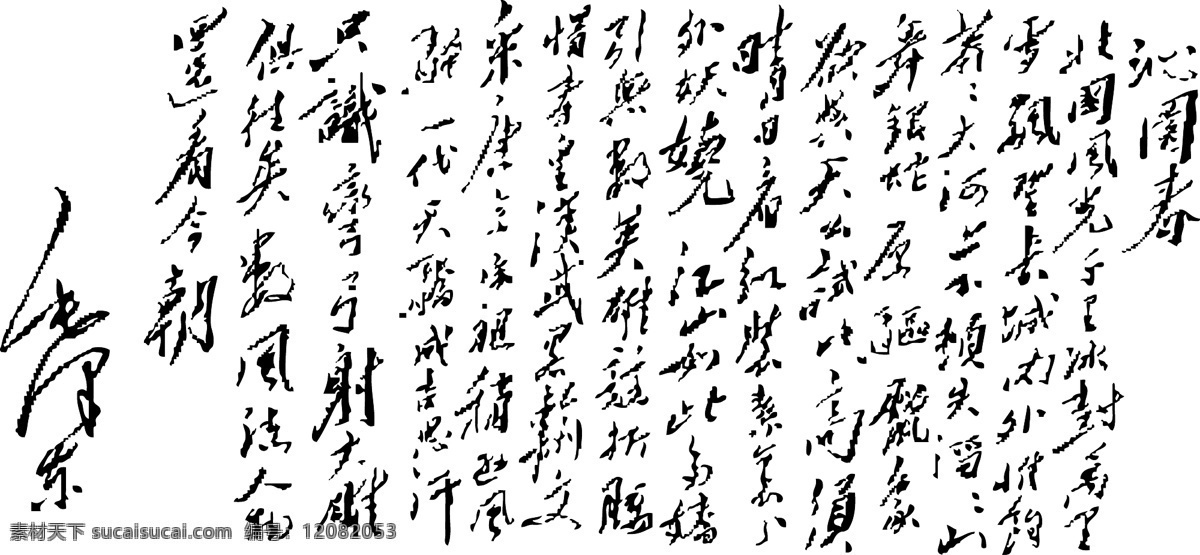 沁園春
北國風光千里冰封萬里
雪飄望長城内外惟餘
莽〻大河上下頓失滔〻山
舞銀蛇原驅臘象
欲與天公試比高須
晴日看紅裝素裹分
外妖嬈江山如此多嬌
引無數英雄競折腰
惜秦皇漢武略輸文
采唐宗宋祖稍遜風
騷一代天驕成吉思汗
只識彎弓射大雕
俱往矣數風流人物
還看今朝
毛澤東
素材天下 sucaisucai.com 编号: 12082053